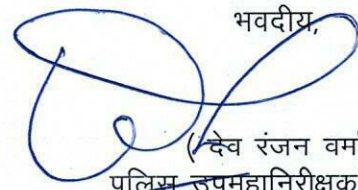 भवदीय,
( देव रंजन वर्मा
पुलिस उपमहानिरीक्षक